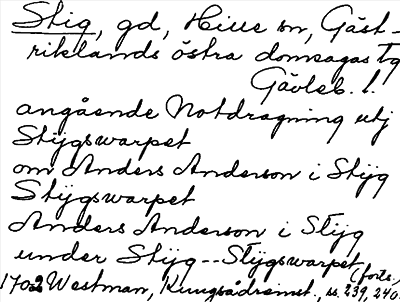 Stig, gd, Hille sn, Gäst-
riklands östra domsagas tg
Gävleb. l.
angående Notdragning utj
Stijgswarpet
om Anders Anderson i Stijg
Stijgswarpet
Anders Anderson i Stijg
under Stijg--Stijgswarpet (forts.,
1702 Westman, Kungsådremot., ss. 239, 240.